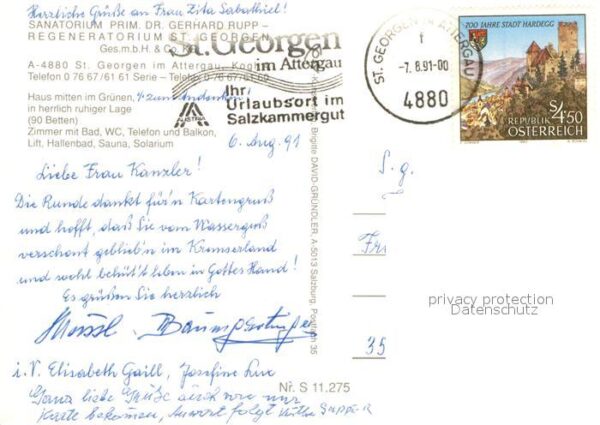 Herzliche Grüße an Frau Zita Sabathiel!
SANATORIUM PRIM. DR. GERHARD RUPP -
REGENERATORIUM ST. GEORGEN
Ges.m.b.H. & Co
A-4880 St. Georgen im Attergau, Kog
Telefon 0 76 67/61 61 Serie - Telefax 0 76 67/61 60
Haus mitten im Grünen, zum Andenken!
in herrlich ruhiger Lage
(90 Betten)
Zimmer mit Bad, WC, Telefon und Balkon,
Lift, Hallenbad, Sauna, Solarium
St. Georgen
im Attergau
Ihr
Urlaubsort im
Salzkammergut
AUSTRIA
ST. GEORGEN IM ATTERGAU
f
-7. 8.91-00
4880
700 JAHRE STADT HARDEGG
S 4.50
REPUBLIK
ÖSTERREICH
6. Aug. 91
Liebe Frau Kanzler!
Die Runde dankt für'n Kartengruß
und hofft, daß Sie vom Wassergeß
verschont geblieb'n im Kremserland
und wohl behüt't leben in Gottes Hand!
Es grüßen Sie herzlich
i.V. Elisabeth Gaill, Josefine
Ganz liebe Grüße auch von mir
Karte bekommen, Antwort folgt
Brigitte DAVID-GRÜNDLER, A-5013 Salzburg, Postfach 35
Nr. S 11.275
S. g.
Fr
35
privacy protection
Datenschutz